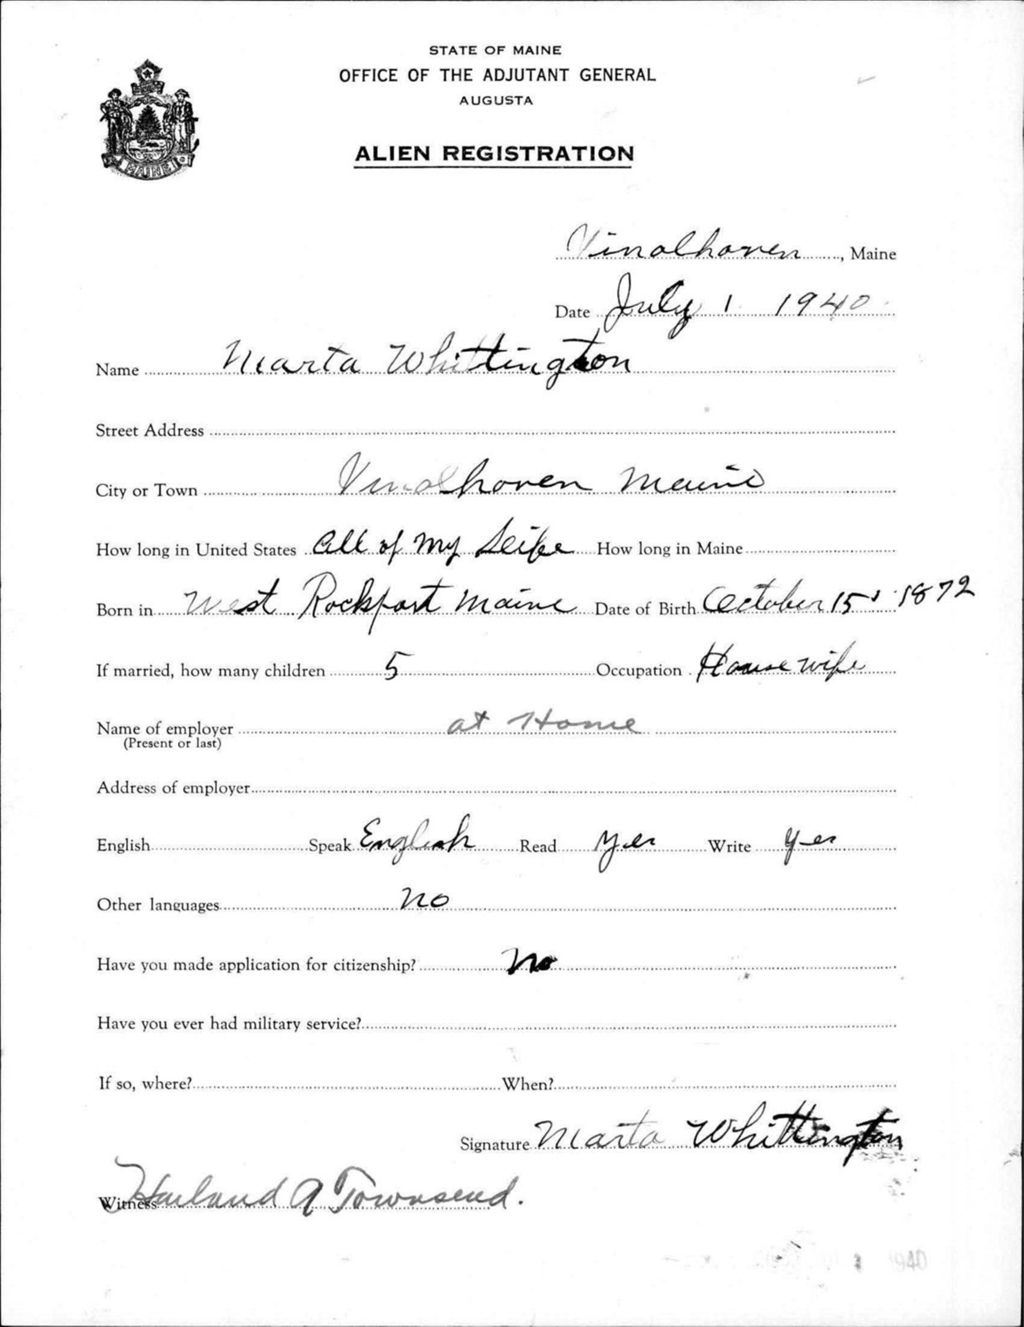 STATE OF MAINE
OFFICE OF THE ADJUTANT GENERAL
AUGUSTA
ALIEN REGISTRATION
MAINE
Vinalhaven, Maine
Date July 1 1940
Name Marta Whittington
Street Address
City or Town Vinalhaven Maine
How long in United States All of My Leife How long in Maine
Born in West Rockport Maine Date of Birth October 15 1872
If married, how many children 5 Occupation House wife
Name of employer at Home
(Present or last)
Address of employer
English Speak English Read yes Write yes
Other languages no
Have you made application for citizenship? No
Have you ever had military service?
If so, where? When?
Signature Marta Whittington
Witness Harland A Townsend.